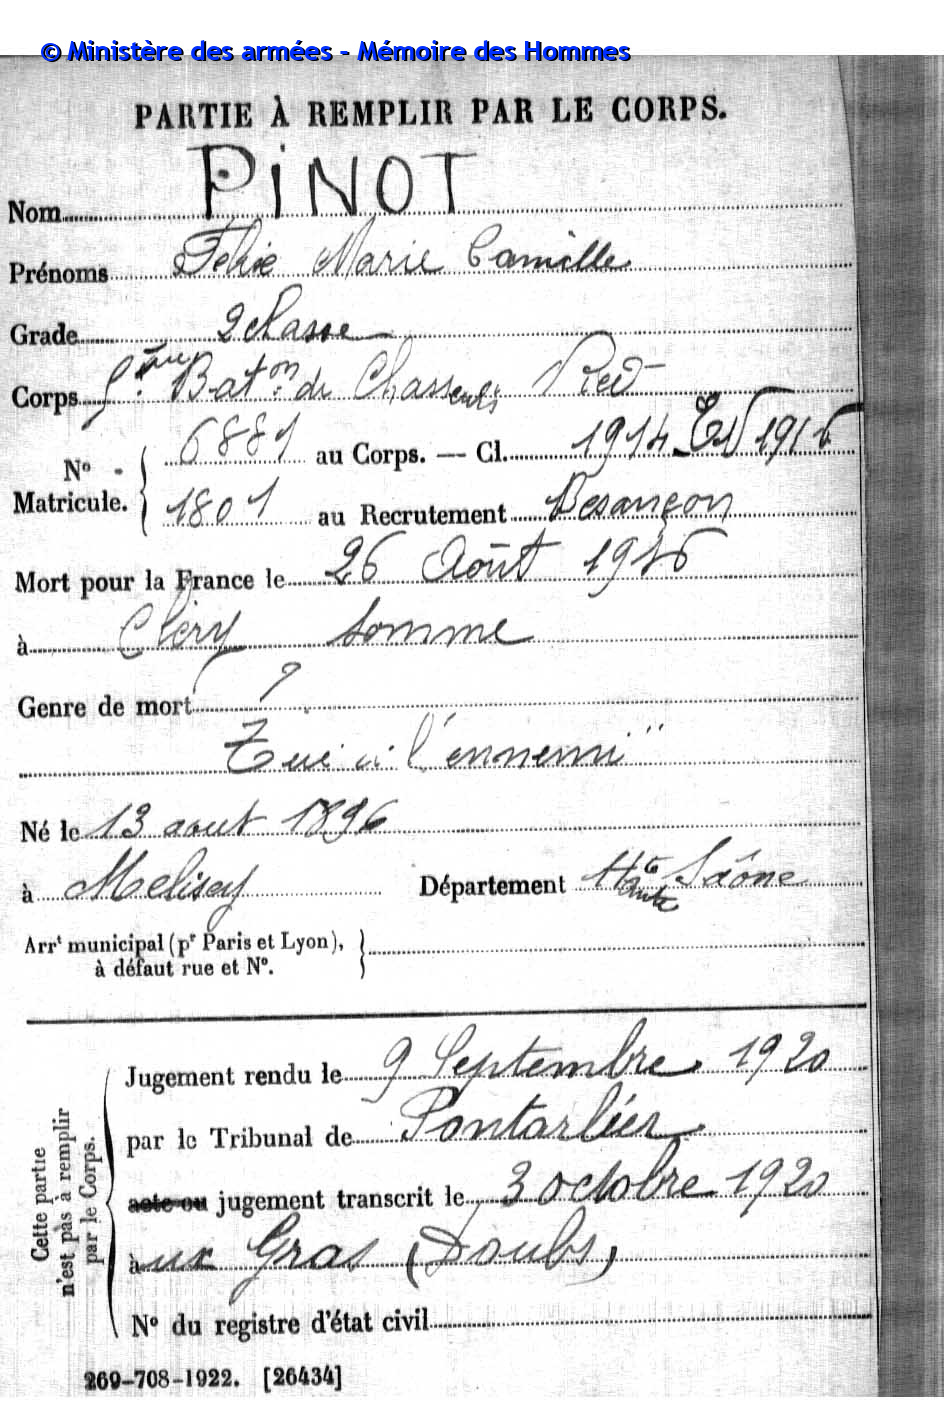 © Ministère des armées - Mémoire des Hommes
PARTIE À REMPLIR PAR LE CORPS.
Nom PINOT
Prénoms Félix Marie Camille
Grade 2 classe
Corps 5ème Baton de Chasseurs Pied
No Matricule. { 6881 au Corps. — Cl. 1914 EV 1916
1801 au Recrutement Besançon
Mort pour la France le 26 Août 1916
à Cléry Somme
Genre de mort ?
Tué à l'ennemi
Né le 13 aout 1896
à Melisey Département Hte Saône
Arrt municipal (pr Paris et Lyon), }
à défaut rue et No.
Cette partie
n'est pas à remplir
par le Corps.
Jugement rendu le 9 Septembre 1920
par le Tribunal de Pontarlier
acte ou jugement transcrit le 3 octobre 1920
à ux Gras (Doubs)
No du registre d'état civil
269-708-1922. [26434]